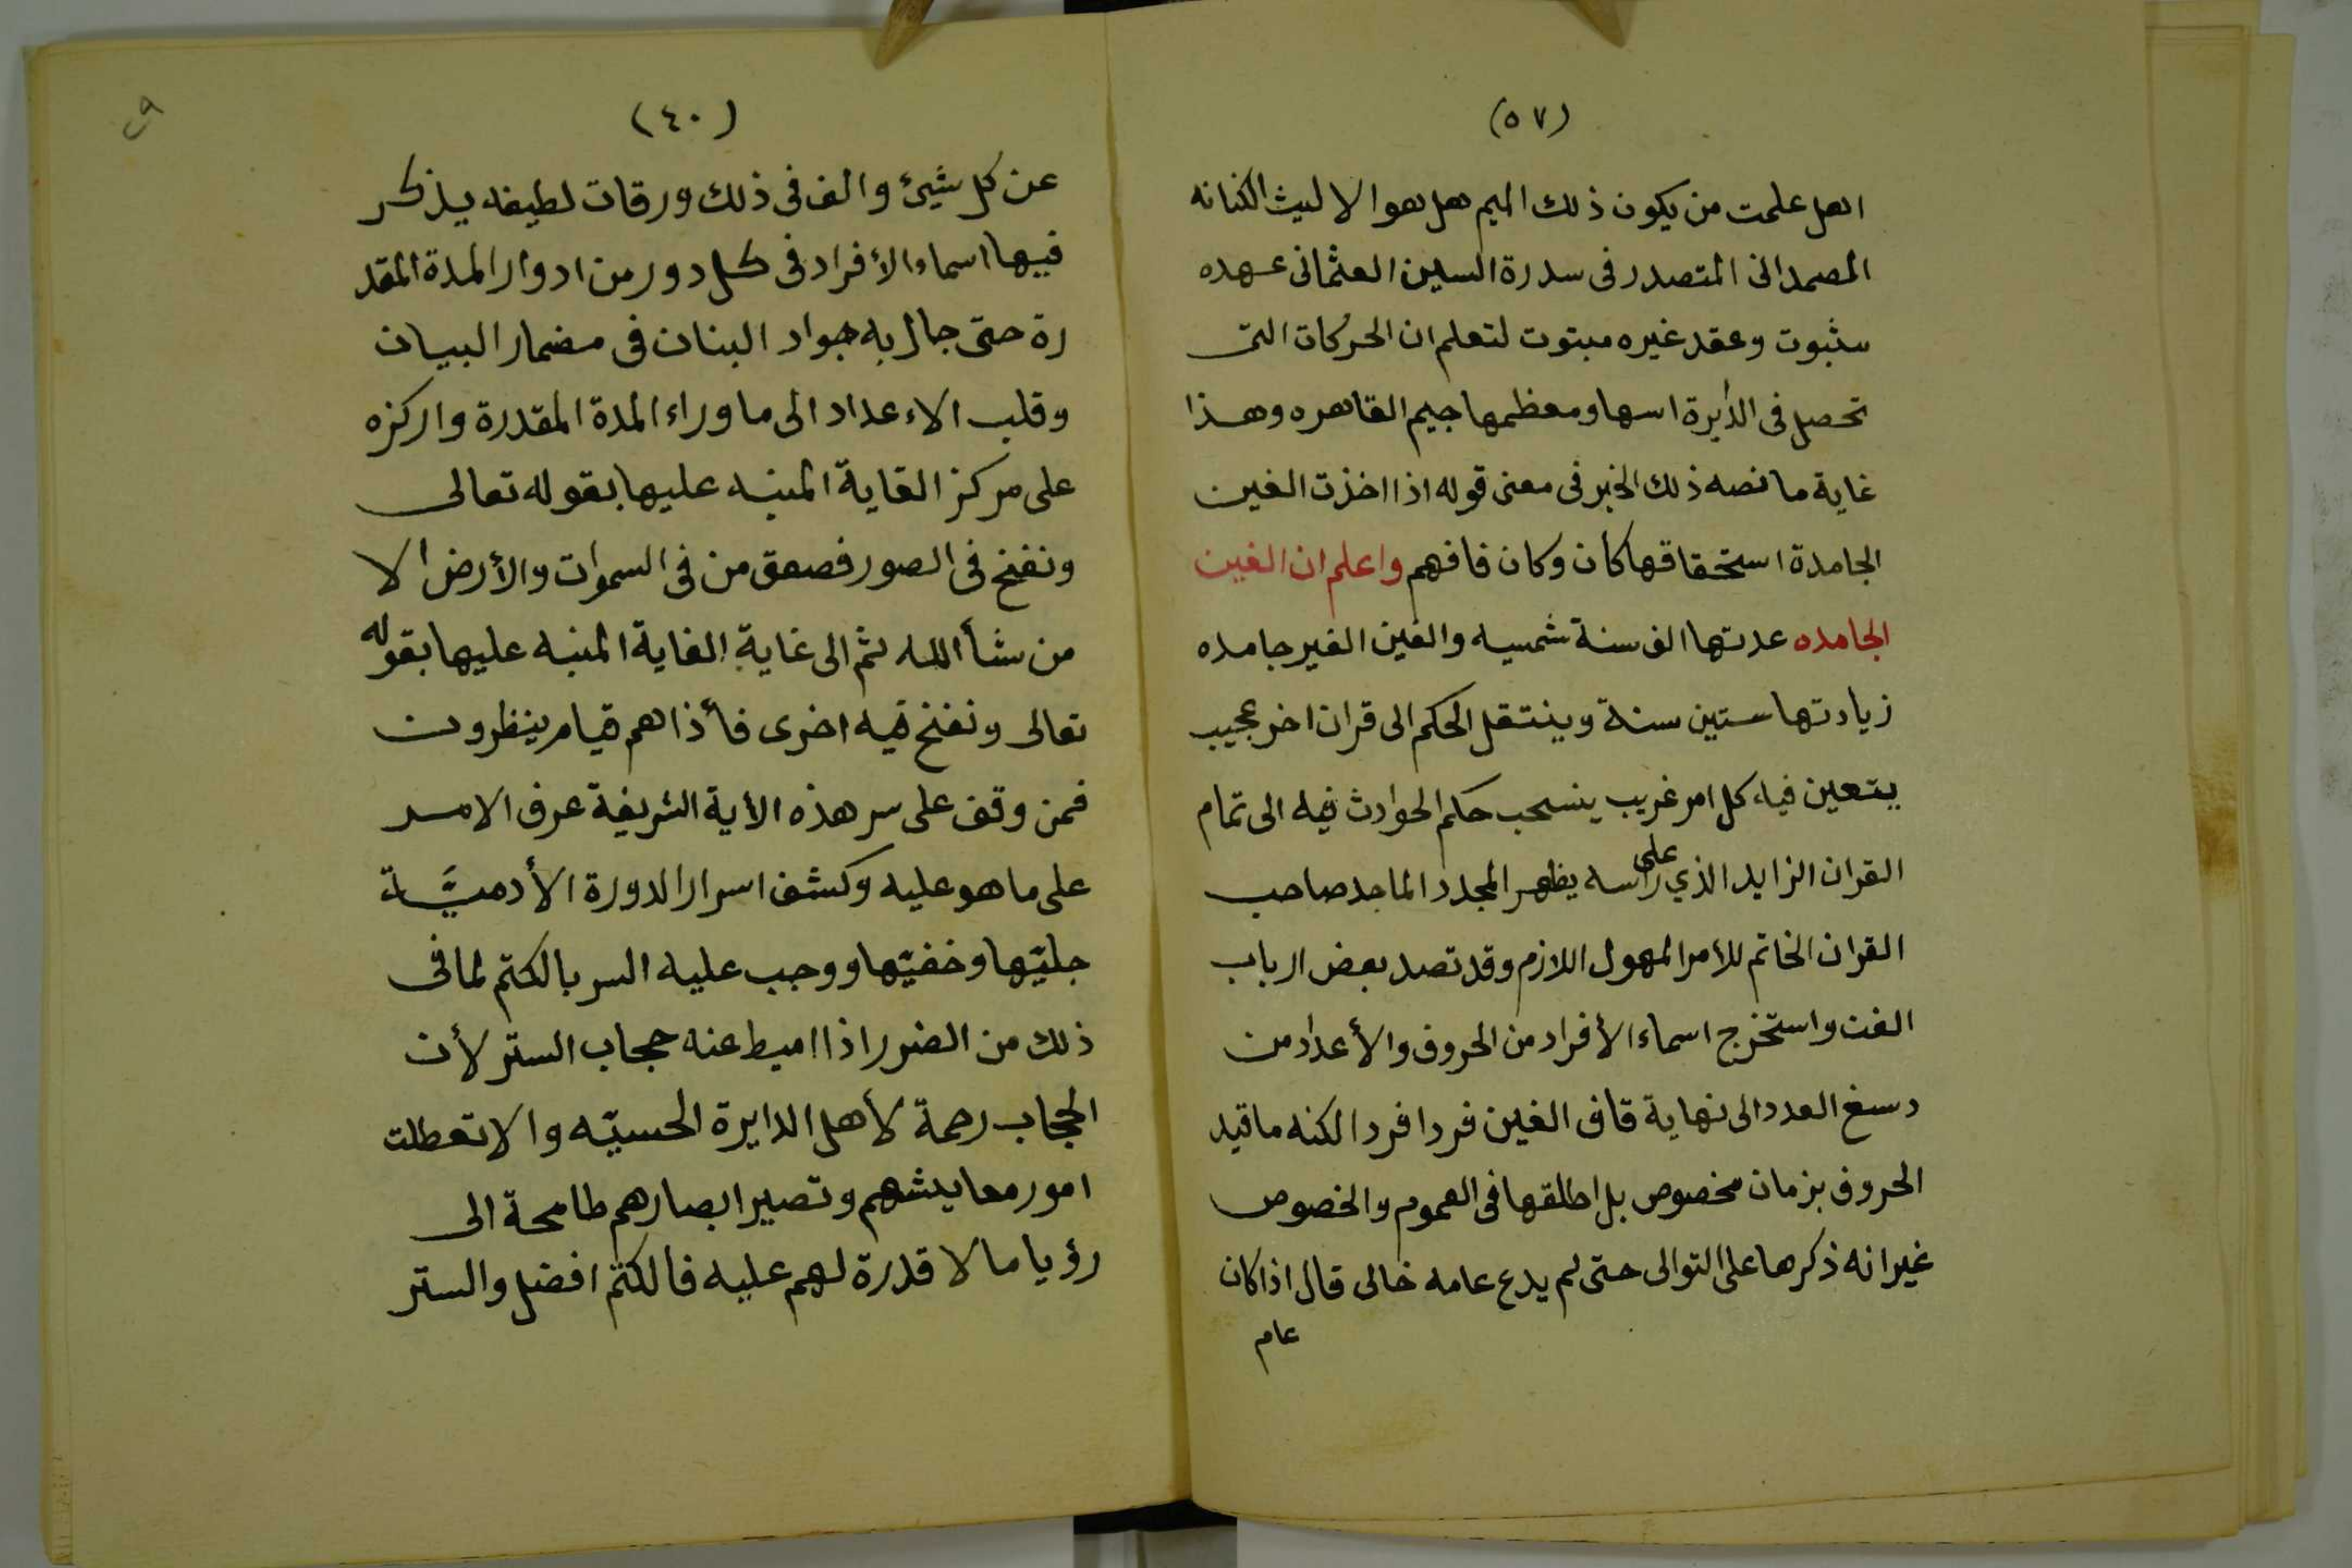 (٥٧)
اهل علمت من يكون ذلك الميم هل هو الا ليث الكنانه
الصمدانى المتصدر فى سدرة السين العثمانى عهده
بثبوت وعقد غيره مبتوت لتعلم ان الحركات التى
تحصل فى الدأيرة اسها ومعظمها جيم القاهره وهذا
غاية ما نصه ذلك الخبر فى معنى قوله اذا اخذت الغين
الجامدة استحقاقها كان وكان فافهم واعلم ان الغين
الجامده عدتها الف سنة شمسيه والغين الغير جامده
زيادتها ستين سنة وينتقل الحكم الى قران اخر عجيب
يتعين فيه كل امر غريب ينسحب حكم الحوادث فيه الى تمام
القران الزايد الذي على راسه يظهر المجدد الماجد صاحب
القران الخاتم للأمر المهول اللازم وقد تصد بعض ارباب
الفن واستخرج اسماء الأفراد من الحروف والأعداد من
دسغ العدد الى نهاية قاف الغين فردا فردا لكنه ما قيد
الحروف بزمان مخصوص بل اطلقها فى العموم والخصوص
غير انه ذكرها على التوالى حتى لم يدع عامه خالى قال اذا كان
عام
٢٩
(٤٠)
عن كل شيئ والف فى ذلك ورقات لطيفه يذكر
فيها اسماء الأفراد فى كل دور من ادوار المدة المقد
رة حتى جال به جواد البنان فى مضمار البيان
وقلب الاءعداد الى ما وراء المدة المقدرة واركزه
على مركز الغاية المنبه عليها بقوله تعالى
ونفخ فى الصور فصعق من فى السموات والأرض الا
من شأ الله ثم الى غاية الغاية المنبه عليها بقوله
تعالى ونفخ فيه اخرى فأذا هم قيام ينظرون
فمن وقف على سر هذه الأية الشريفة عرف الامر
على ما هو عليه وكشف اسرار الدورة الأدميَّة
جليّها وخفيّها ووجب عليه السر بالكتم لما فى
ذلك من الضرر اذا اميط عنه حجاب الستر لأن
الحجاب رحمة لأهل الدايرة الحسيّه والا تعطلت
امور معايشهم وتصير ابصارهم طامحة الى
رؤيا مالا قدرة لهم عليه فالكتم افضل والستر